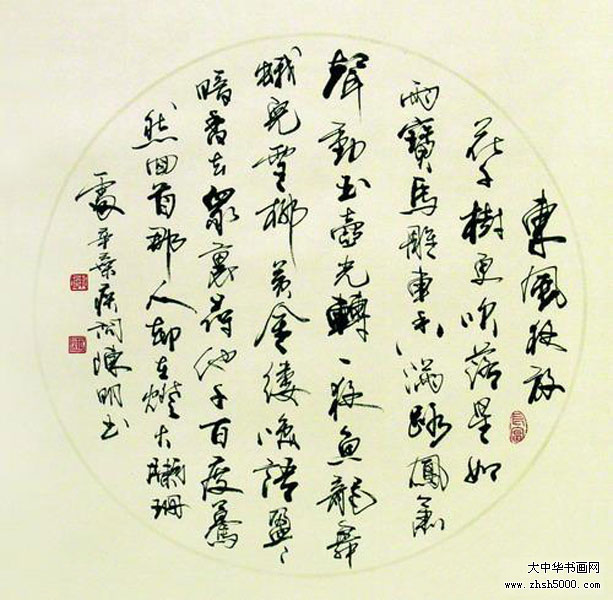 東風夜放
花千樹更吹落星如
雨寶馬雕車香滿路鳳簫
聲動玉壺光轉一夜魚龍舞
蛾兒雪柳黃金縷咲語盈〻
暗香去衆裏尋他千百度驀
然回首那人却在燈火闌珊
處辛棄疾詞陳明書
大中华书画网
www.zhsh5000.com